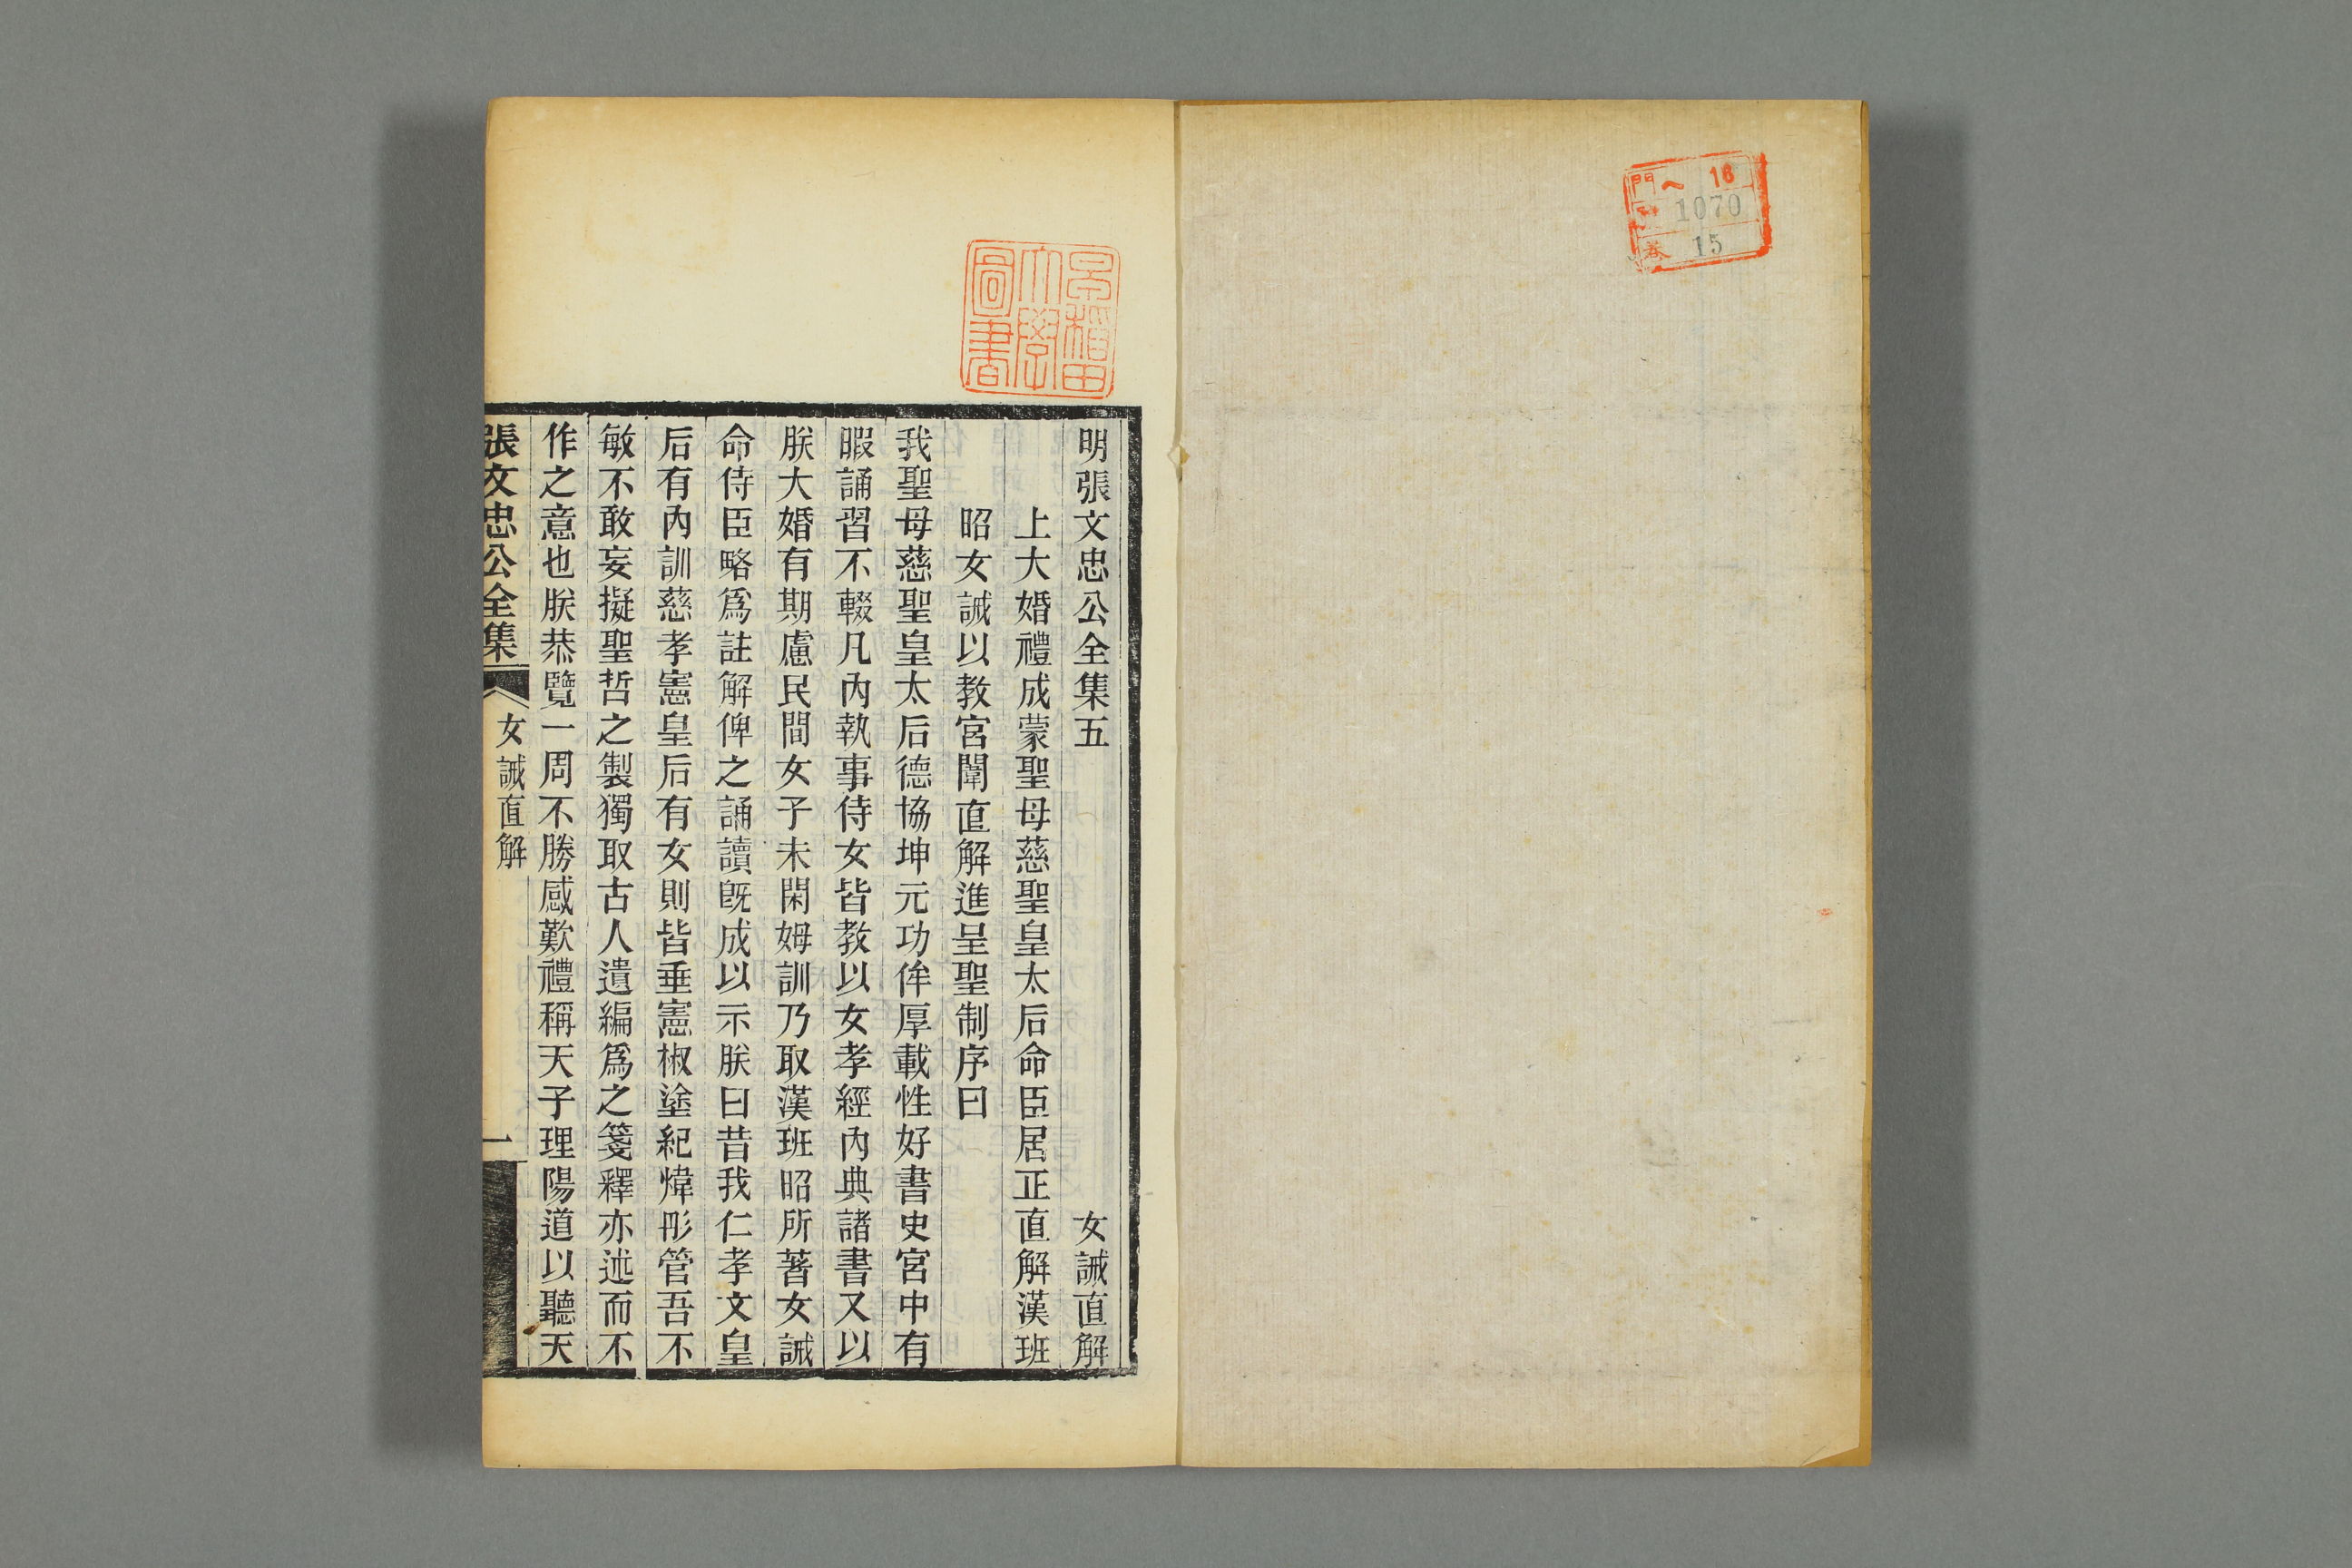 門 ヘ 16
1070
巻 15
早稲田
大學
圖書
明張文忠公全集五 女誡直解
上大婚禮成蒙聖母慈聖皇太后命臣居正直解漢班
昭女誡以教宮闈直解進呈聖制序曰
我聖母慈聖皇太后德協坤元功侔厚載性好書史宮中有
暇誦習不輟凡內執事侍女皆教以女孝經內典諸書又以
朕大婚有期慮民間女子未閑姆訓乃取漢班昭所著女誡
命侍臣略爲註解俾之誦讀旣成以示朕曰昔我仁孝文皇
后有內訓慈孝憲皇后有女則皆垂憲椒塗紀煒彤管吾不
敏不敢妄擬聖哲之製獨取古人遺編爲之箋釋亦述而不
作之意也朕恭覽一周不勝感歎禮稱天子理陽道以聽天
張文忠公全集 女誡直解 一